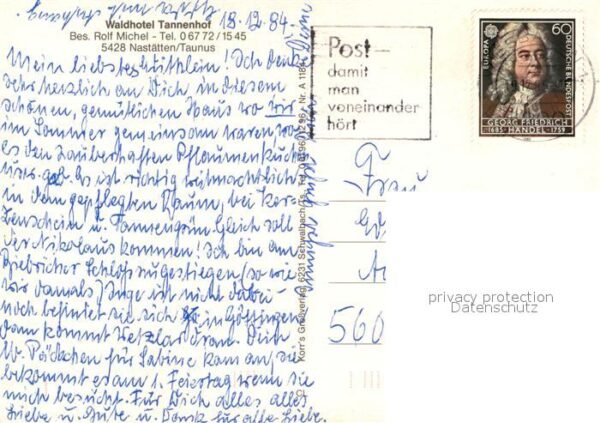 18.12.84
Waldhotel Tannenhof
Bes. Rolf Michel - Tel. 0 67 72 / 15 45
5428 Nastätten/Taunus
Mein liebstes! Ich denk
sehr herzlich an Dich in diesem
schönen, gemütlichen Haus wo wir
im Sommer gemeinsam waren, wo
es den zauberhaften Pflaumenkuchen
gab. Es ist richtig weihnachtlich
in dem gepflegten Raum, bei Ker-
zenschein u. Tannengrün. Gleich soll
der Nikolaus kommen! Ich bin am
Biebricher Schloß zugestiegen (so wie
wir damals) Inge ist nicht dabei
noch befindet sie sich in Göttingen
dann kommt Wetzlar dran. Dein
Päckchen für Sabine kam an, sie
bekommt es am 1. Feiertag wenn sie
mich besucht. Für Dich alles alles
Liebe u. Gute u. Dank für alle Liebe.
Korr's Großverlag, 6231 Schwalbach/Ts.
Post-
damit
man
voneinander
hört
EUROPA
60
DEUTSCHE BUNDESPOST
GEORG FRIEDRICH
1685 HÄNDEL 1759
Frau
560
privacy protection
Datenschutz